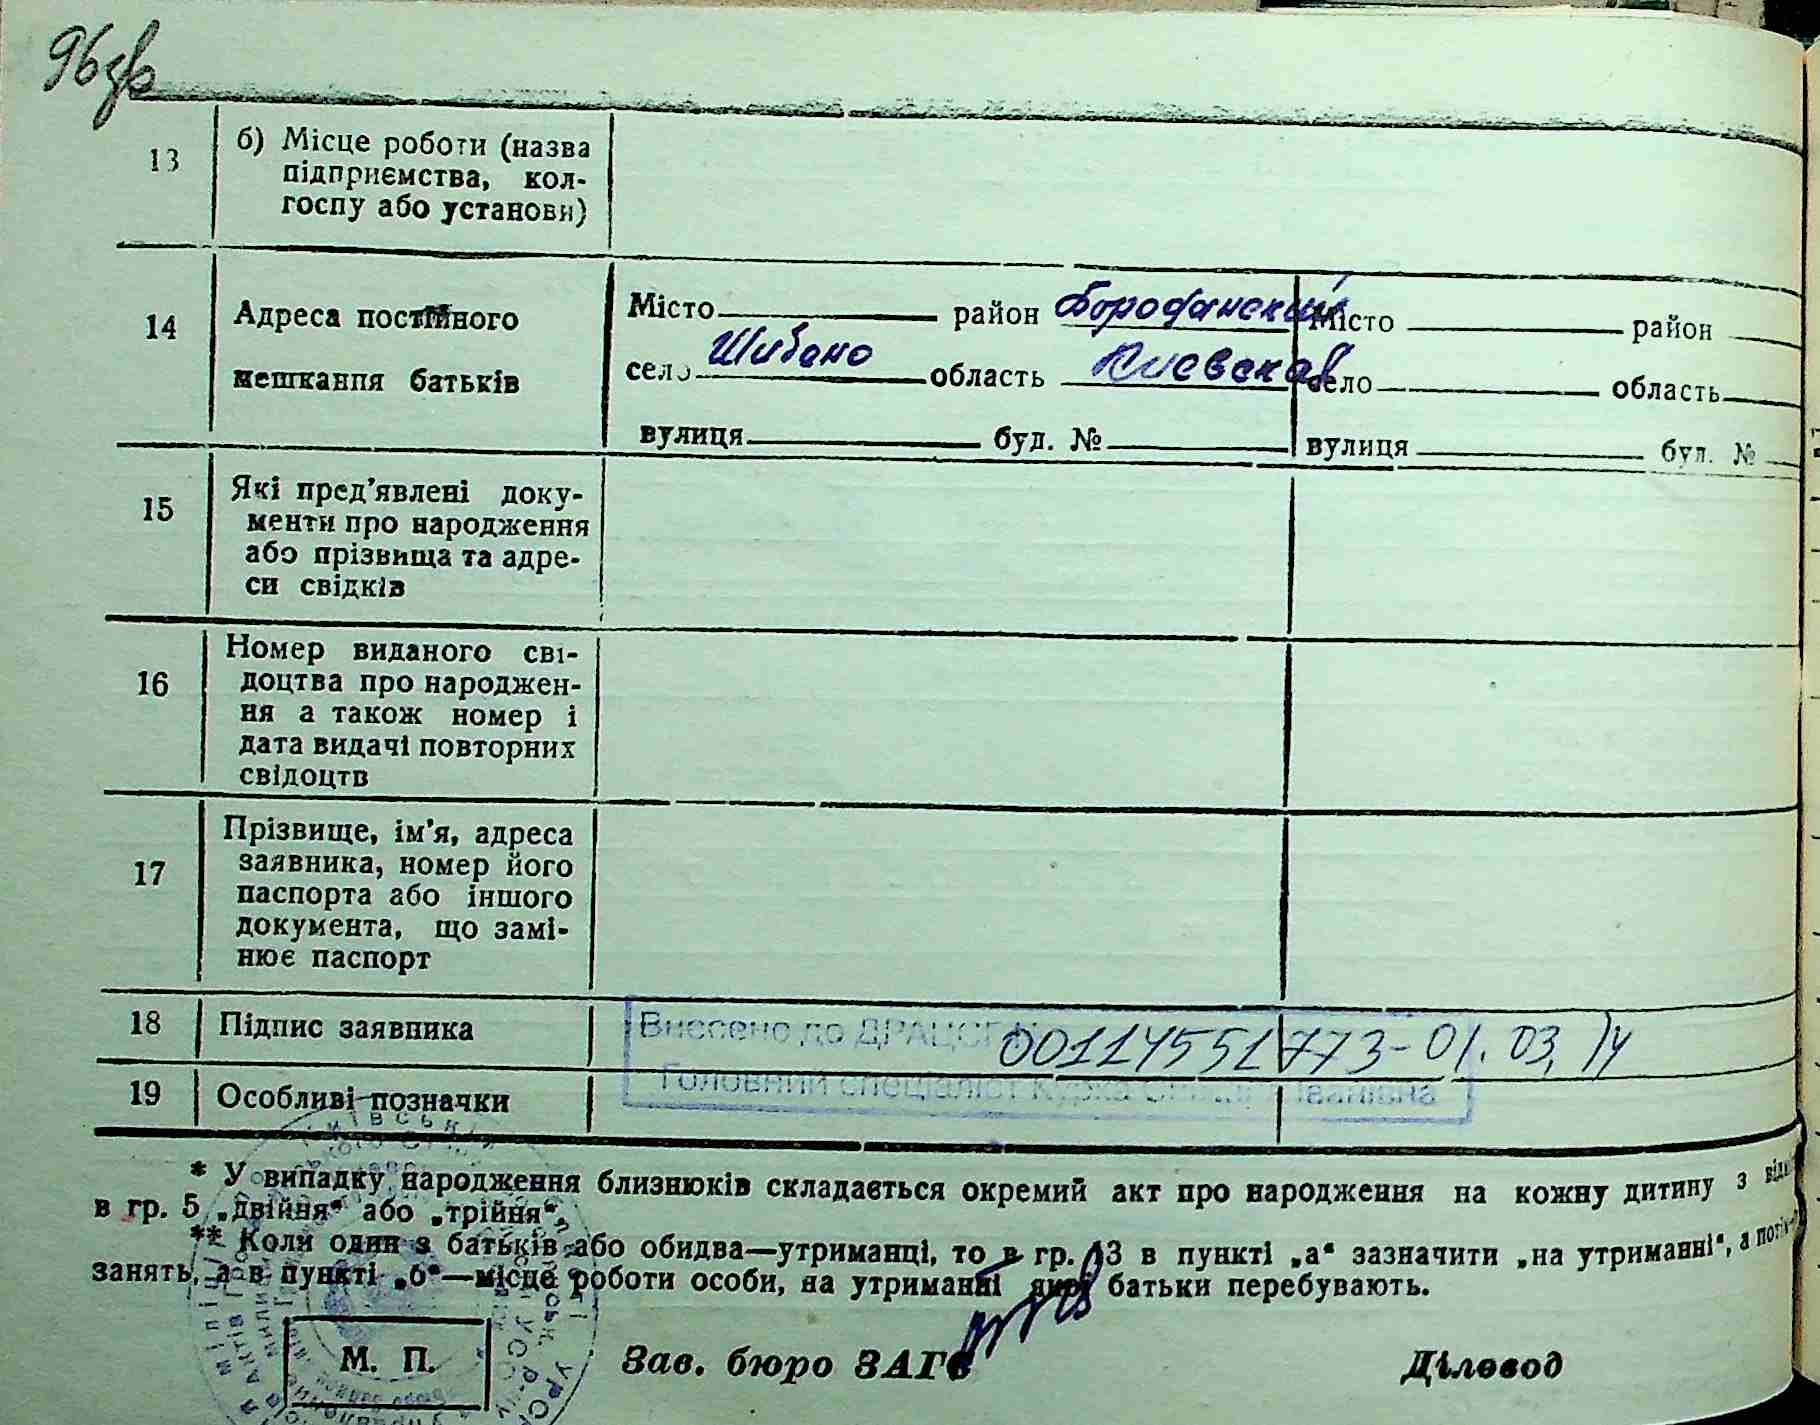 96зв
13
б) Місце роботи (назва
підприємства, кол-
госпу або установи)
14
Адреса постійного
мешкання батьків
Місто район Бородянский
село Шибено область Киевская
вулиця буд. №
Місто район
село область
вулиця буд. №
15
Які пред'явлені доку-
менти про народження
або прізвища та адре-
си свідків
16
Номер виданого сві-
доцтва про народжен-
ня а також номер і
дата видачі повторних
свідоцтв
17
Прізвище, ім'я, адреса
заявника, номер його
паспорта або іншого
документа, що замі-
нює паспорт
18
Підпис заявника
Внесено до ДРАЦСГ 00114551773-01.03.14
Головний спеціаліст Іванівна
19
Особливі позначки
* У випадку народження близнюків складається окремий акт про народження на кожну дитину з
в гр. 5 „двійня" або „трійня".
** Коли один з батьків або обидва—утриманці, то в гр. 13 в пункті „а" зазначити „на утриманні", а
занять, а в пункті „б"—місце роботи особи, на утриманні якої батьки перебувають.
М. П.
Зав. бюро ЗАГС
Діловод